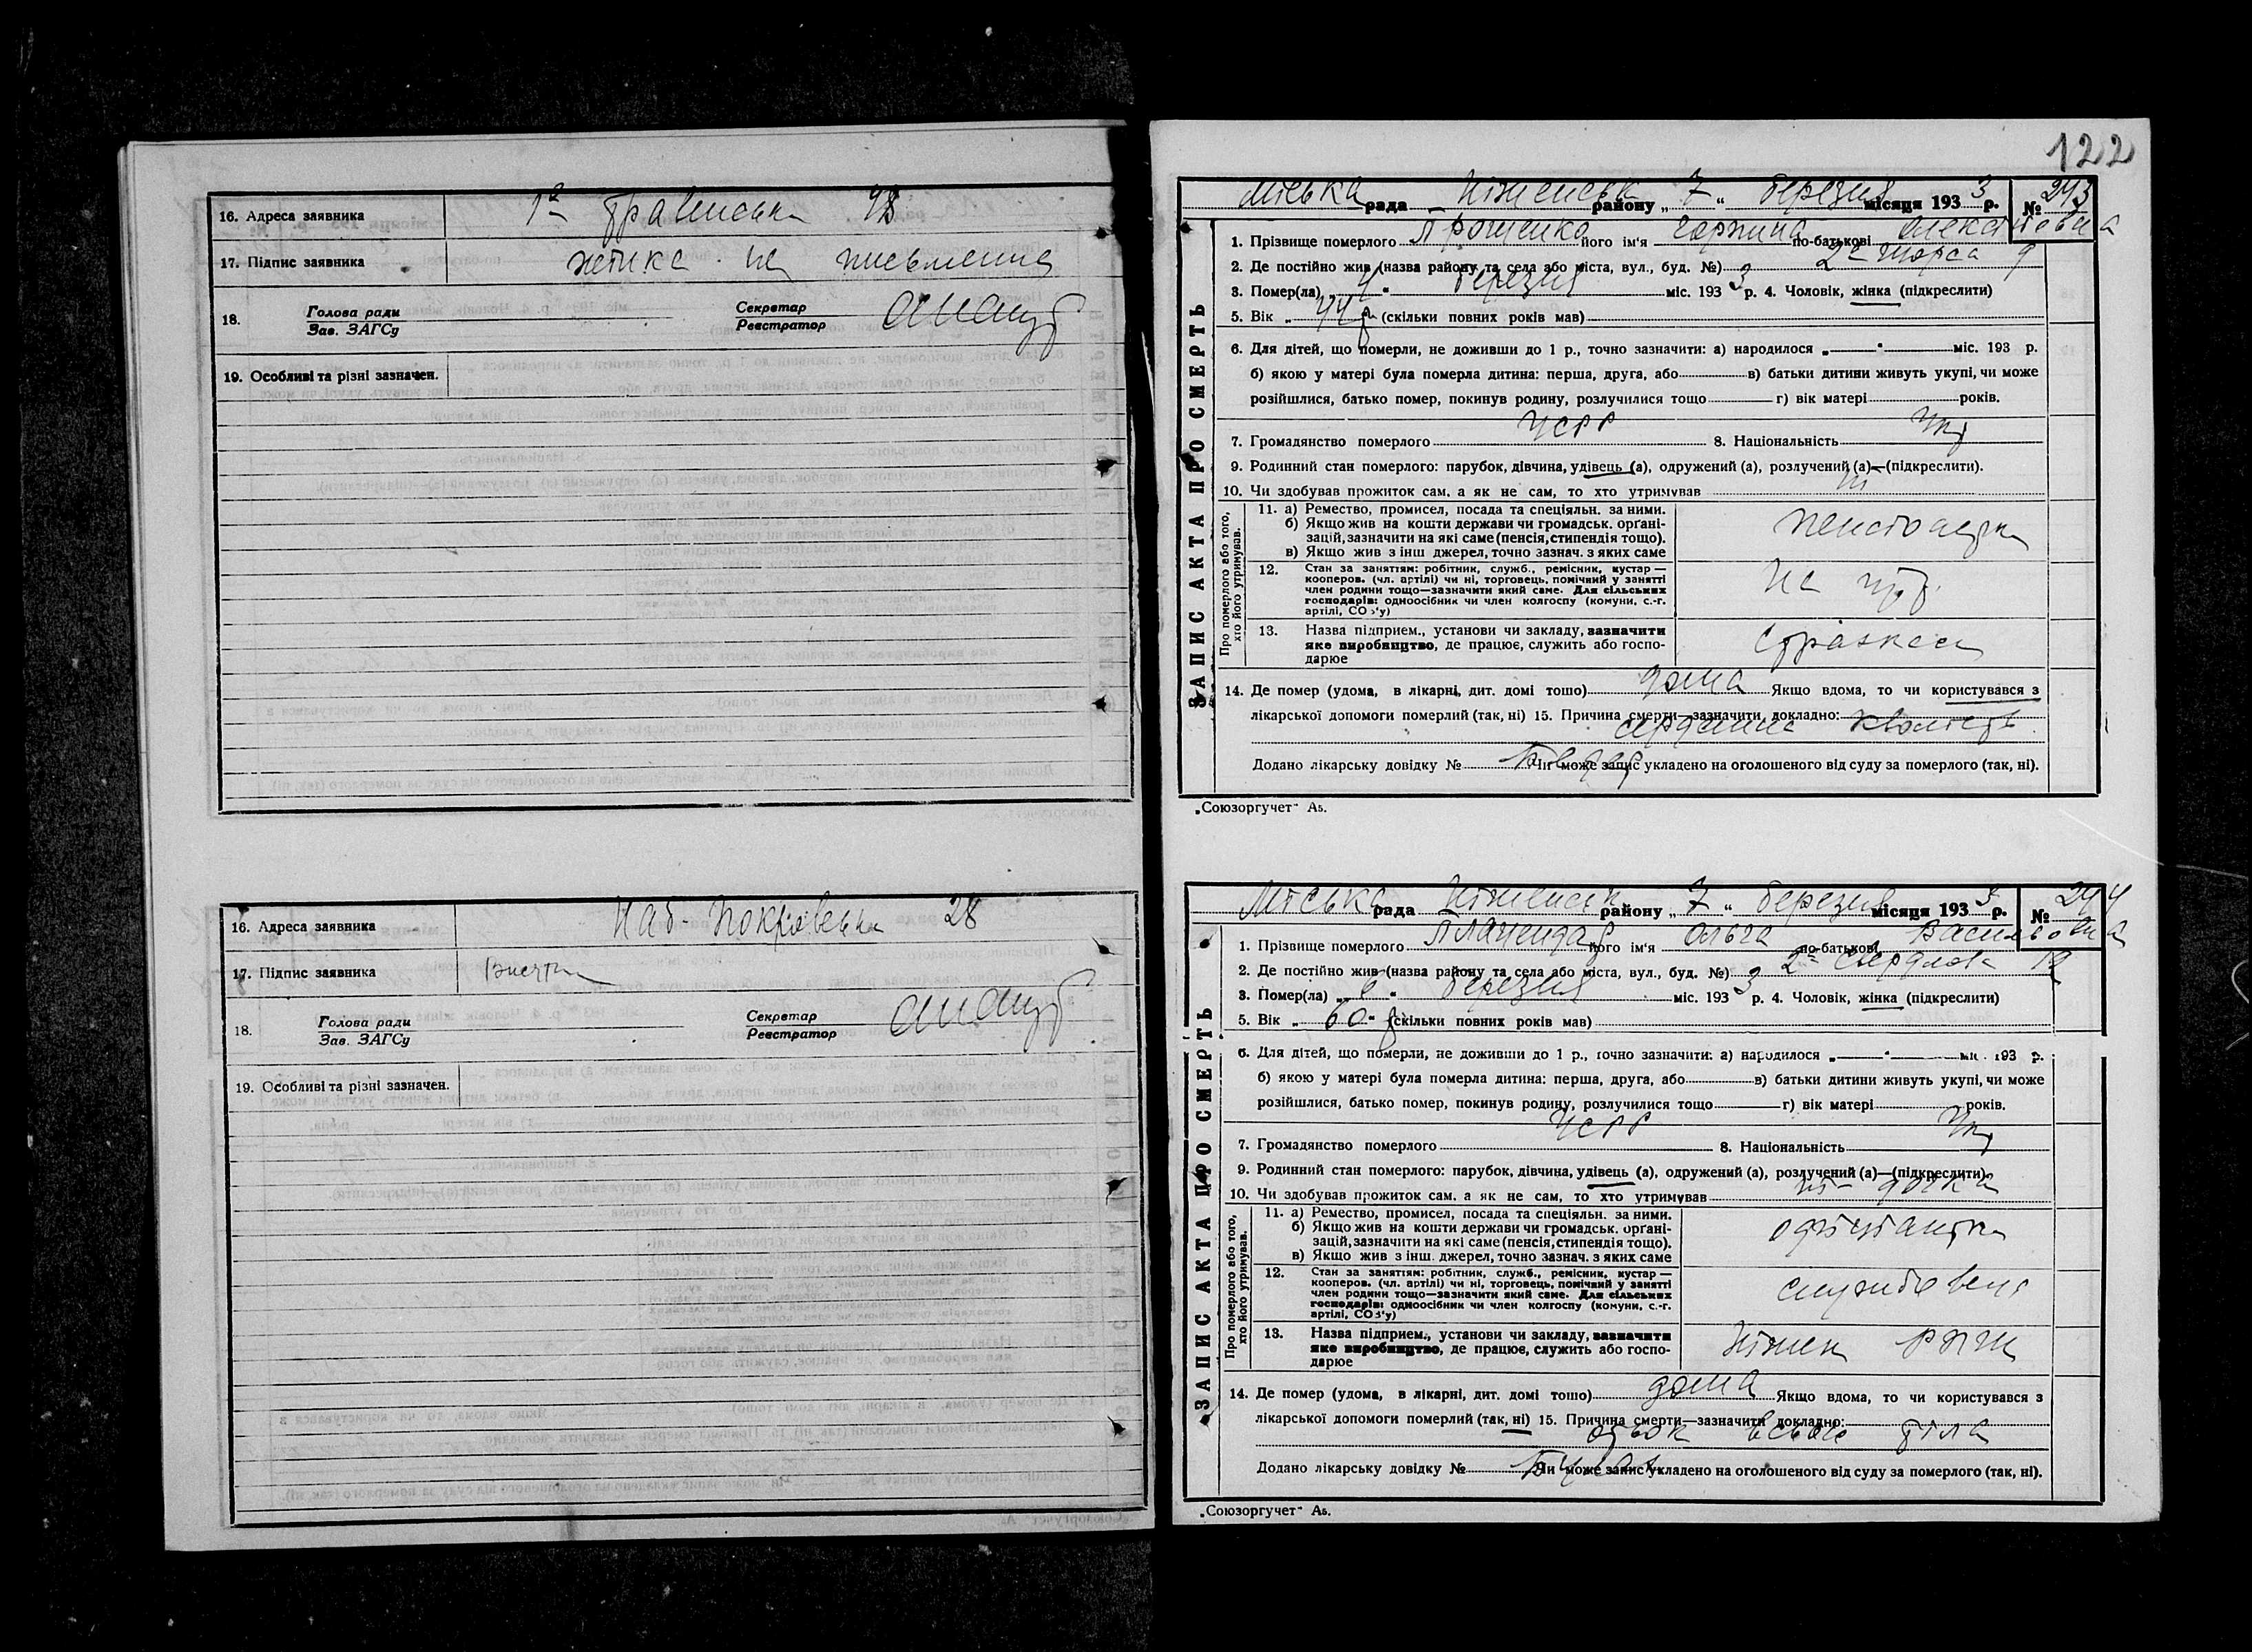 16. Адреса заявника 1а 98
17. Підпис заявника не письменна
18. Голова ради Зав. ЗАГСу Секретар Реєстратор
19. Особливі та різні зазначен.
16. Адреса заявника Наб-Покровська 28
17. Підпис заявника
18. Голова ради Зав. ЗАГСу Секретар Реєстратор
19. Особливі та різні зазначен.
122
Міська рада Ніженськ району „ 7 “ березня місяця 1933 р. № 243
ЗАПИС АКТА ПРО СМЕРТЬ
1. Прізвище померлого Прощенко його ім'я Горпина по-батькові
2. Де постійно жив (назва району та села або міста, вул., буд. №) 2а Щорса 9
3. Помер(ла) „ 4 “ березня міс. 1933 р. 4. Чоловік, жінка (підкреслити)
5. Вік „ 44 р (скільки повних років мав)
6. Для дітей, що померли, не доживши до 1 р., точно зазначити: а) народилося „ “ міс. 193 р.
б) якою у матері була померла дитина: перша, друга, або в) батьки дитини живуть укупі, чи може
розійшлися, батько помер, покинув родину, розлучилися тощо г) вік матері років.
7. Громадянство померлого УСРР 8. Національність Укр
9. Родинний стан померлого: парубок, дівчина, удівець (а), одружений (а), розлучений (а)—(підкреслити).
10. Чи здобував прожиток сам, а як не сам, то хто утримував ні
Про померлого або того, хто його утримував.
11. а) Ремество, промисел, посада та спеціяльн. за ними.
б) Якщо жив на кошти держави чи громадськ. орґані-
зацій, зазначити на які саме (пенсія, стипендія тощо).
в) Якщо жив з інш джерел, точно зазнач. з яких саме
пенсіонерка
12. Стан за заняттям: робітник, служб., ремісник, кустар —
кооперов. (чл. артілі) чи ні, торговець, помічний у занятті
член родини тощо—зазначити який саме. Для сільських
господарів: одноосібник чи член колгоспу (комуни, с.-г.
артілі, СОЗ'у)
не
13. Назва підприєм., установи чи закладу, зазначити
яке виробництво, де працює, служить або госпо-
дарює
Страхкаса
14. Де помер (удома, в лікарні, дит. домі тощо) дома Якщо вдома, то чи користувався з
лікарської допомоги померлий (так, ні) 15. Причина смерти—зазначити докладно:
сердечна кволість
Додано лікарську довідку № Чи може запис укладено на оголошеного від суду за померлого (так, ні).
„Союзоргучет“ А5.
Міська рада Ніженськ району „ 7 “ березня місяця 1933 р. № 244
ЗАПИС АКТА ПРО СМЕРТЬ
1. Прізвище померлого його ім'я Ольга по-батькові Васильовна
2. Де постійно жив (назва району та села або міста, вул., буд. №) 2а Свердлова 12
3. Помер(ла) „ 6 “ березня міс. 1933 р. 4. Чоловік, жінка (підкреслити)
5. Вік „ 60 “ р (скільки повних років мав)
6. Для дітей, що померли, не доживши до 1 р., точно зазначити: а) народилося „ “ міс. 193 р.
б) якою у матері була померла дитина: перша, друга, або в) батьки дитини живуть укупі, чи може
розійшлися, батько помер, покинув родину, розлучилися тощо г) вік матері років.
7. Громадянство померлого УСРР 8. Національність Укр
9. Родинний стан померлого: парубок, дівчина, удівець (а), одружений (а), розлучений (а)—(підкреслити).
10. Чи здобував прожиток сам, а як не сам, то хто утримував ні - дочка
Про померлого або того, хто його утримував.
11. а) Ремество, промисел, посада та спеціяльн. за ними.
б) Якщо жив на кошти держави чи громадськ. орґані-
зацій, зазначити на які саме (пенсія, стипендія тощо).
в) Якщо жив з інш. джерел, точно зазнач. з яких саме
офіціантка
12. Стан за заняттям: робітник, служб., ремісник, кустар —
кооперов. (чл. артілі) чи ні, торговець, помічний у занятті
член родини тощо—зазначити який саме. Для сільських
господарів: одноосібник чи член колгоспу (комуни, с.-г.
артілі, СОЗ'у)
службовець
13. Назва підприєм., установи чи закладу, зазначити
яке виробництво, де працює, служить або госпо-
дарює
Ніжен
14. Де помер (удома, в лікарні, дит. домі тошо) дома Якщо вдома, то чи користувався з
лікарської допомоги померлий (так, ні) 15. Причина смерти—зазначити докладно:
отьок всього тіла
Додано лікарську довідку № Чи може запис укладено на оголошеного від суду за померлого (так, ні).
„Союзоргучет“ А5.